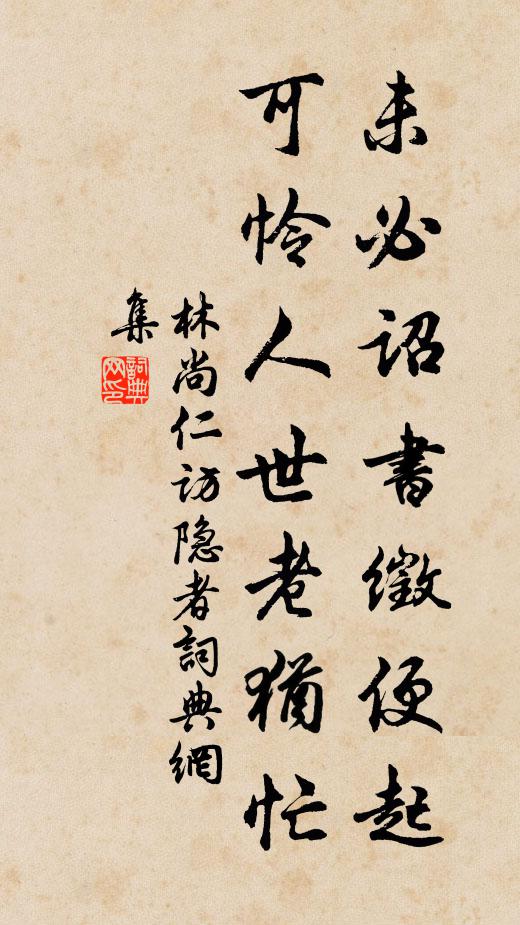 未必詔書徵便起
可怜人世老猶忙
林尚仁访隐者詞典網
集
詞典
网印